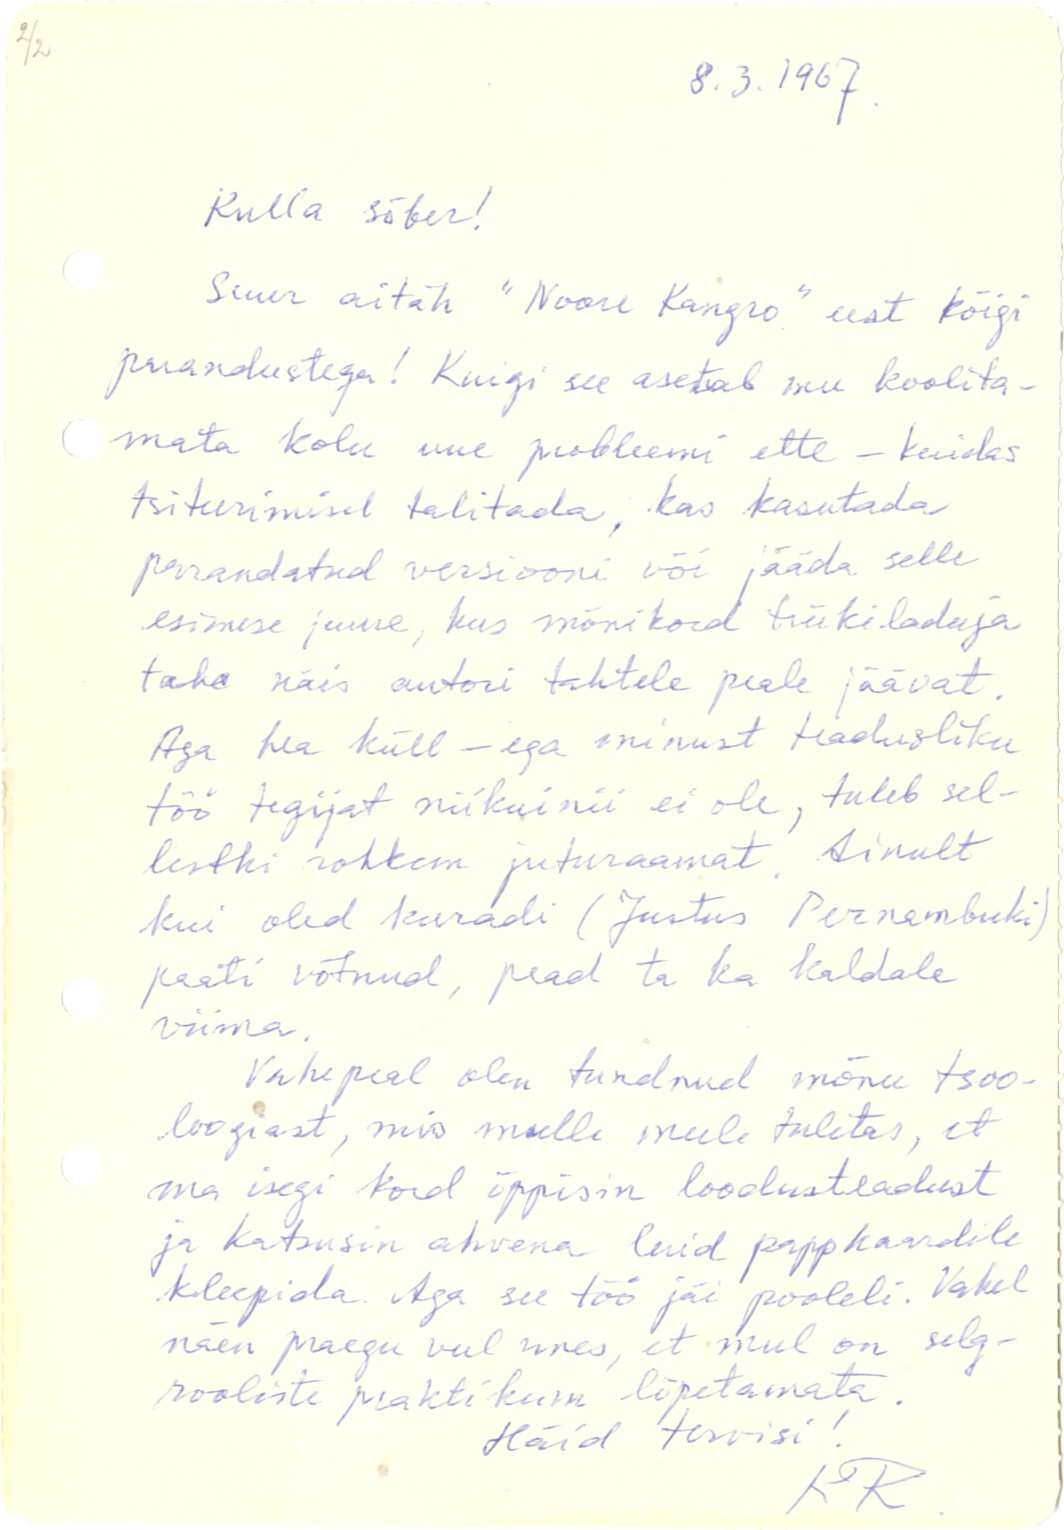 2/2
8.3.1967.
Kulla sõber!
Suur aitäh "Noore Kangro" eest kõigi
parandustega! Kuigi see asetab mu koolita-
mata kolu uue probleemi ette – kuidas
tsiteerimisel talitada, kas kasutada
parandatud versiooni või jääda selle
esimese juure, kus mõnikord trükiladuja
tahe näis autori tahtele peale jäävat.
Aga hea küll – ega minust teadusliku
töö tegijat niikuinii ei ole, tuleb sel-
lestki rohkem juturaamat. Ainult
kui oled kuradi (Justus Pernambuki)
paati võtnud, pead ta ka kaldale
viima.
Vahepeal olen tundnud mõnu tsoo-
loogiast, mis mulle meele tuletas, et
ma isegi kord õppisin loodusteadust
ja katsusin ahvena luid pappkaardile
kleepida. Aga see töö jäi pooleli. Vahel
näen praegu veel unes, et mul on selg-
rooliste praktikum lõpetamata.
Häid tervisi!
KR.